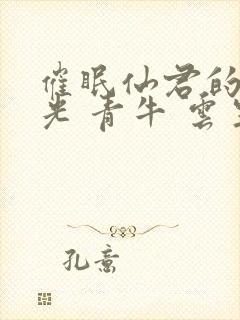 催眠仙君的
光 青牛 雲
孔意